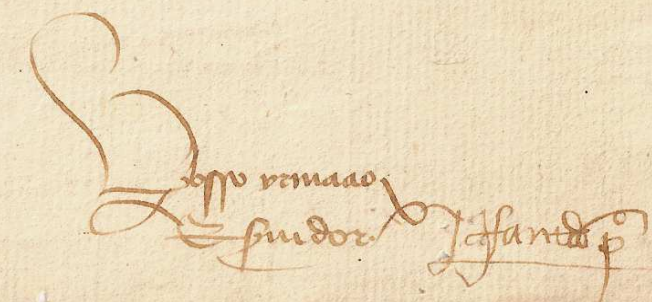 Vosso yrmaao
E Seruidor Jffante dom p.º